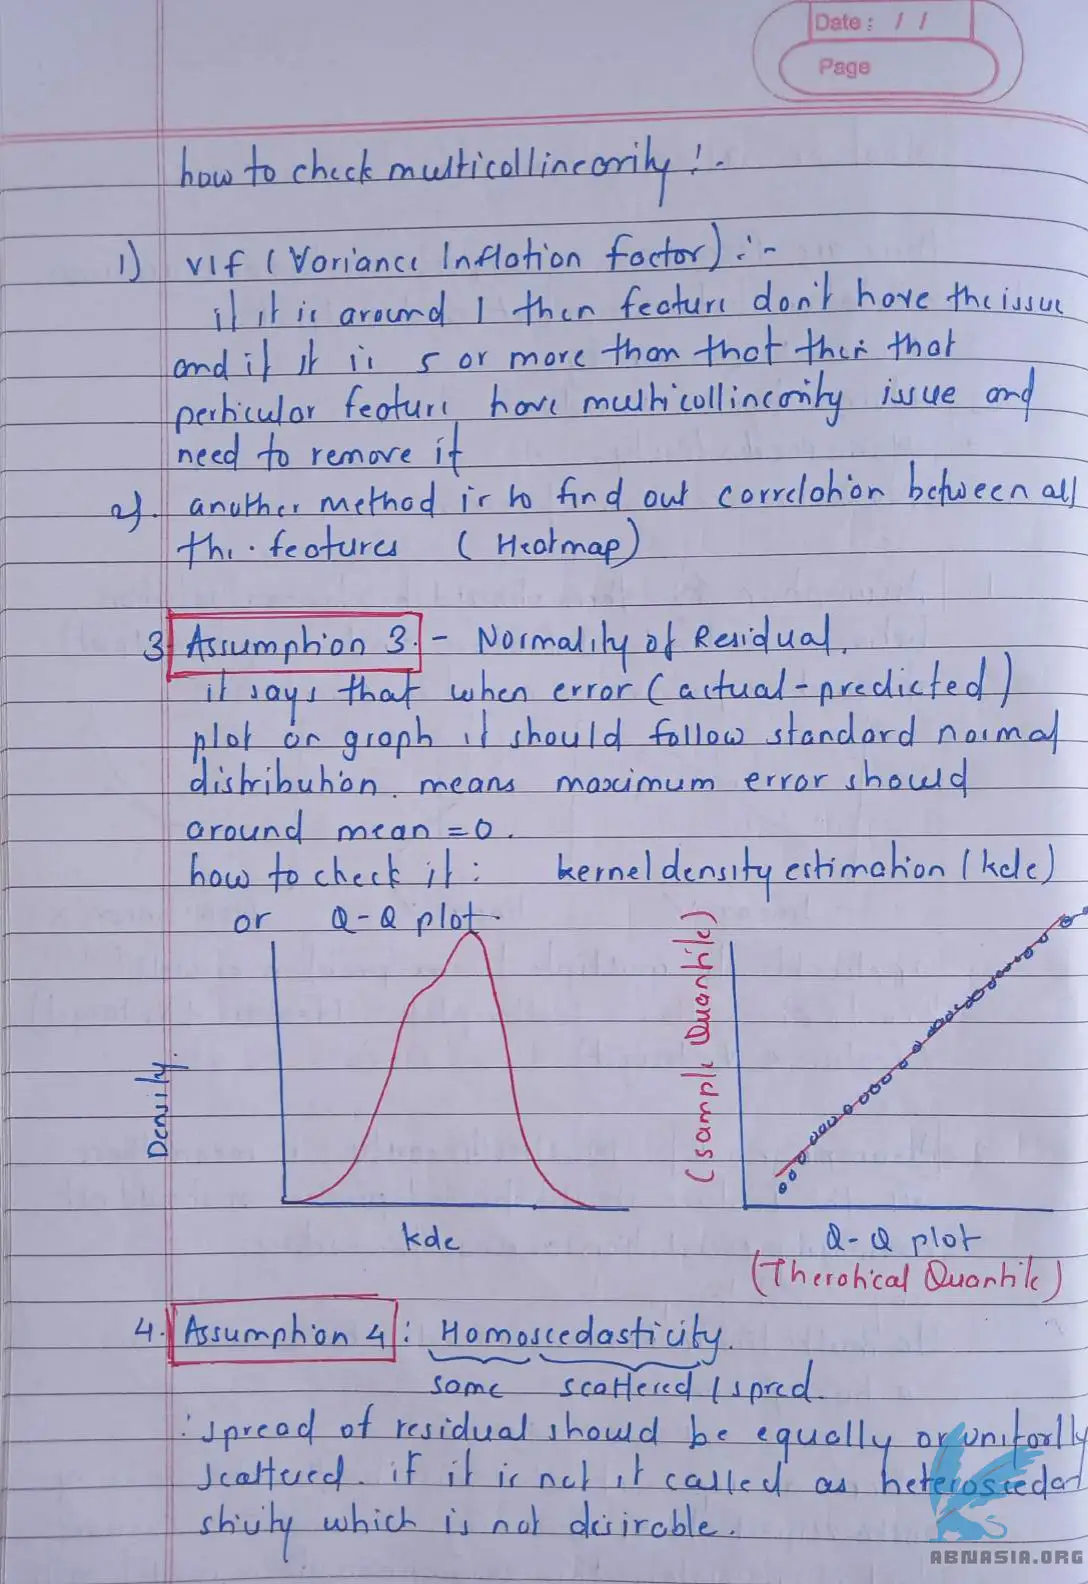 Date : / /
Page
how to check multicollinearity :-
1) VIF (Variance Inflation factor) :-
if it is around 1 then feature don't have the issue
and if it is 5 or more than that then that
perticular feature have multicollinearity issue and
need to remove it
2). another method is to find out correlation between all
the features (Heatmap)
3. Assumption 3 :- Normality of Residual.
it says that when error (actual-predicted)
plot on graph it should follow standard normal
distribution. means maximum error should
around mean = 0.
how to check it : kernel density estimation (kde)
or Q-Q plot.
Density.
kde
(sample Quantile)
Q-Q plot
(Therotical Quantile)
4. Assumption 4 : Homoscedasticity.
same scattered / spred.
: spread of residual should be equally or uniforlly
scattered. if it is not it called as heteroscedat
sticity which is not desirable.
ABNASIA.ORG